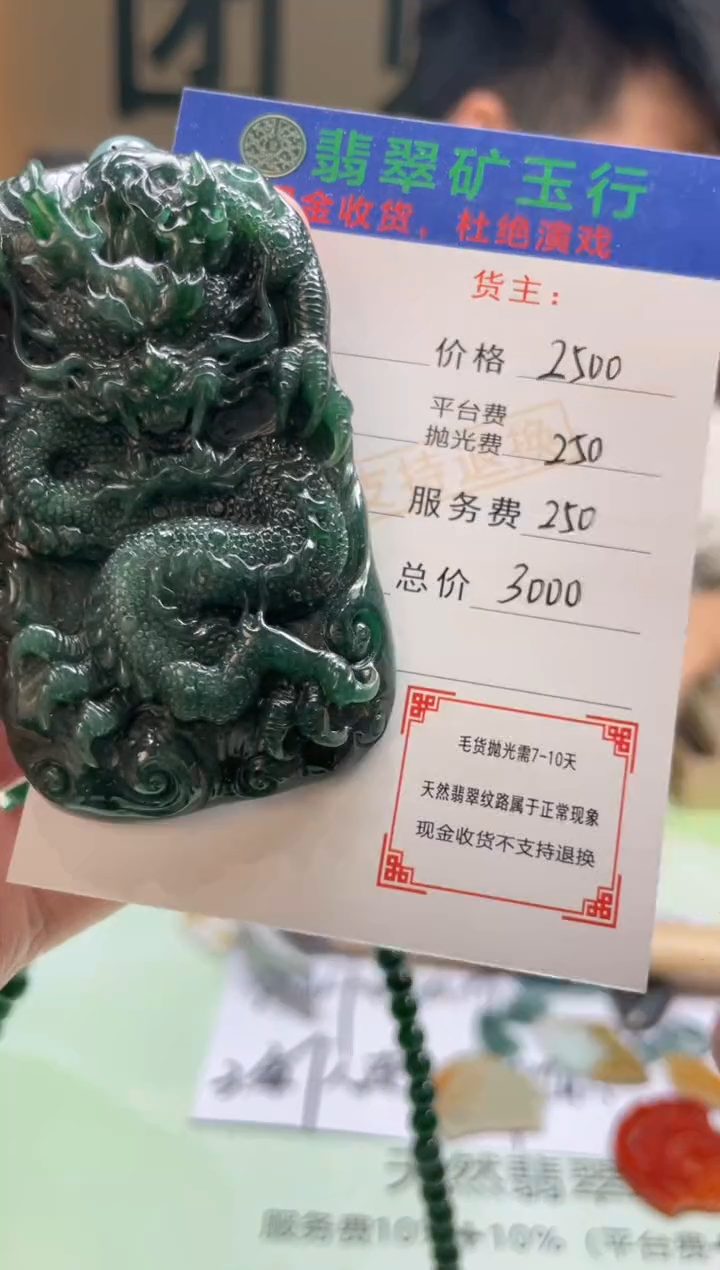 团
翡翠矿玉行
金收货，杜绝演戏
货主：
价格 2500
平台费
抛光费 250
支持退换
服务费 250
总价 3000
毛货抛光需7-10天
天然翡翠纹路属于正常现象
现金收货不支持退换
天然翡翠
服务费10%+10%（平台费